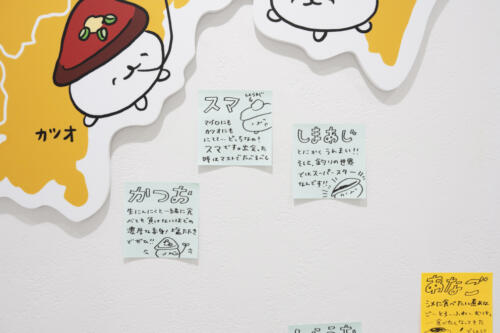 カツオ
スマ
しょうが
マグロにも
カツオにも
にてる…どっちなの?
スマですの出会えた
時はマストでたべるべし
しまあじ
とにかくうまい!!
そして、釣りの世界
ではスーパースター
なんです!!
かつお
生にんにくと一緒に食
べても負けないほどの
濃厚な赤身!塩たたき
でぜひ!!
あなご
シメに食べたい